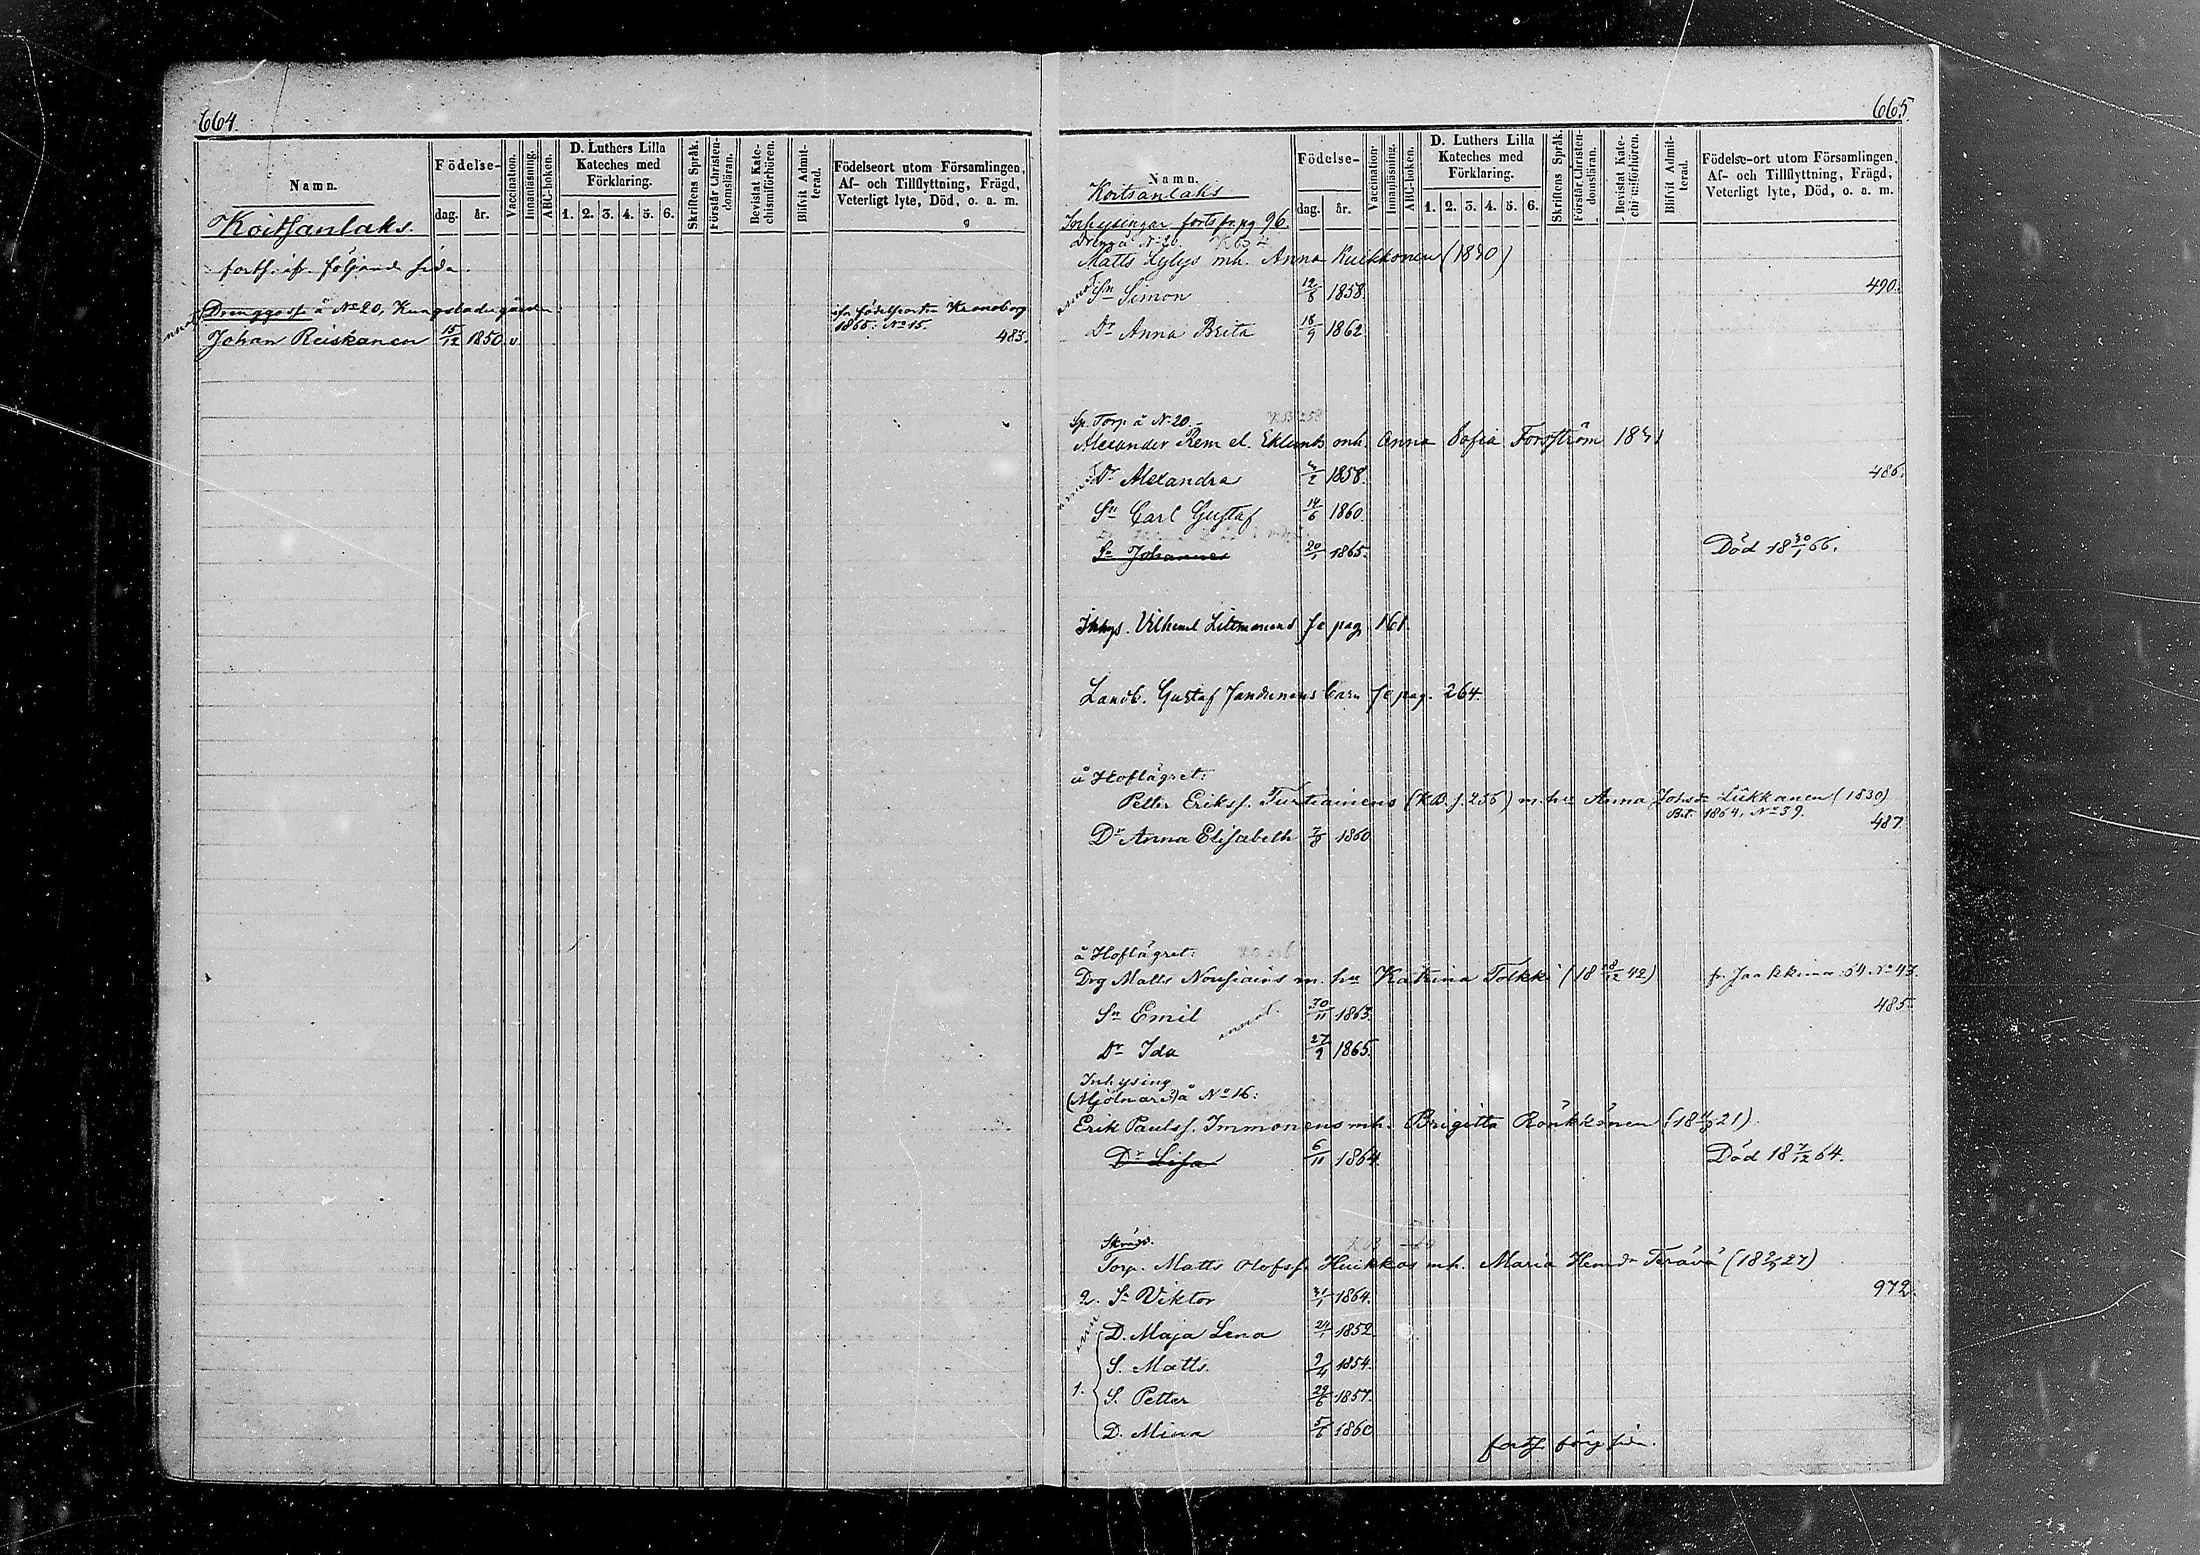 664.
Namn.
Födelse-
dag. år.
Vaccination.
Innanläsning.
ABC-boken.
D. Luthers Lilla
Kateches med
Förklaring.
1. 2. 3. 4. 5. 6.
Skriftens Språk.
Förstår Christen-
domsläran.
Bevistat Kate-
chismiförhören.
Blifvit Admit-
terad.
Födelseort utom Församlingen,
Af- och Tillflyttning, Frägd,
Veterligt lyte, Död, o. a. m.
Koitsanlaks.
forts. å följande sida.
å No 20, Kungsladugården
Johan Reiskanen 15/12 1850. v.
Kronoborg
1865: No 15.
483.
665
Namn.
Koitsanlaks
Födelse-
dag. år.
Vaccination.
Innanläsning.
ABC-boken.
D. Luthers Lilla
Kateches med
Förklaring.
1. 2. 3. 4. 5. 6.
Skriftens Språk.
Förstår Christen-
domsläran.
Bevistat Kate-
chismiförhören.
Blifvit Admit-
terad.
Födelse-ort utom Församlingen,
Af- och Tillflyttning, Frägd,
Veterligt lyte, Död, o. a. m.
Inhysingar forts fr. pg 96.
Dreng å No 20.
Matts Lylys mh. Anna
Sn Simon 12/8 1858. 490.
Dr Anna Brita 18/9 1862.
Sp. Torp å N 20.
Alexander Rem el. Eklunds mh. Anna Sofia Forsström
Dr Alexandra 1858. 486.
Sn Carl Gustaf 14/6 1860.
Sn Johannes 20/1 1865. Död 18 30/1 66.
Inhys. Vilhemd se pag 161.
Landb. Gustaf Jandunens barn se pag. 264.
å Hoflägret:
Petter Eriks. Turtiainens (K.B. s. 256) m. hu Anna Johsdr Liikkanen (1830)
Bet. 1864, No 39.
Dr Anna Elisabeth 7/8 1860 487
å Hoflägret:
Drg Matts Nousiains m. hu Katrina Tolkki (18 18/12 42) fr. Jaakkima 64. No 47.
Sn Emil 30/11 1863. 485.
Dr Ida 27/9 1865.
Inhysing
(Mjölnare) å No 16:
Erik Pauls. Immonens mh. Brigitta Rönkkönen
Dr Lisa 6/11 1864. Död 18 7/12 64.
Torp. Matts Olofss. Huikkas mh. Maria Hemdr Terävä
2. Sn Viktor 31/1 1864. 972.
D. Maja Lena 24/1 1852
S. Matts. 9/4 1854.
1. S. Petter 29/6 1857.
D. Mina 1860
forts. följ sida.